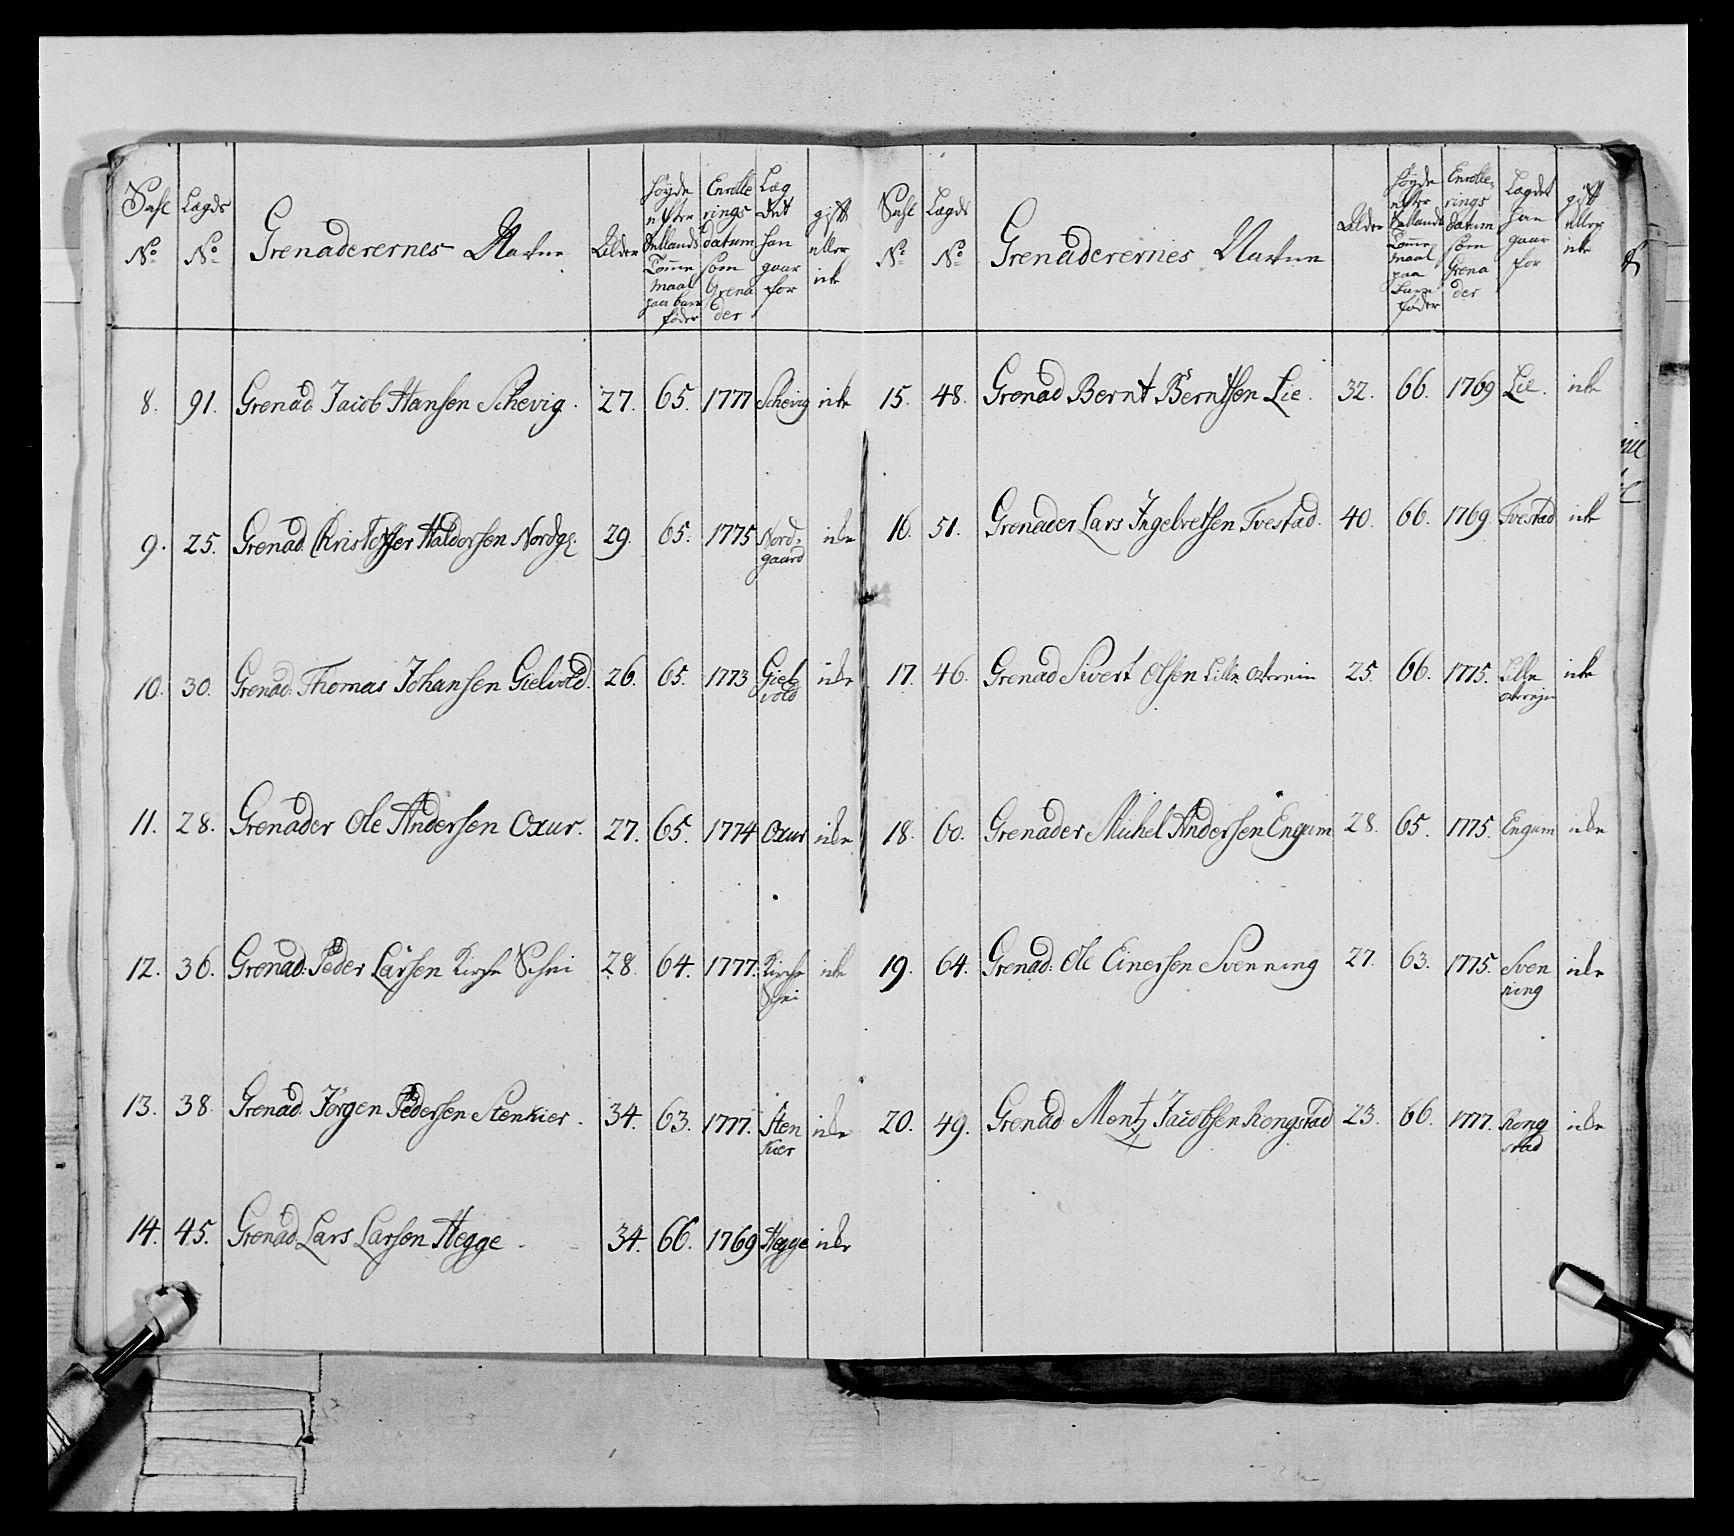 Sahl No | Lægds No | Grenaderernes Nafne | Alder | Høyde efter Sællands Tomme maal paa bare føder | Enrolle rings datum som Grena der | Læg det han gaar for | gift eller ikke
8. | 91. | Grenad. Jacob Hansen Schevig. | 27. | 65. | 1777 | Schevig | icke
9. | 25. | Grenad. Christoffer Haldorsen Nordg: | 29. | 65. | 1775 | Nord= gaard | icke
10. | 30. | Grenad. Thomas Johansen Gielvold. | 26. | 65. | 1773 | Giel vold | icke
11. | 28. | Grenader Ole Andersen Oxur. | 27. | 65. | 1774 | Oxur | icke
12. | 36. | Grenad: Peder Larsen Kirche Schei | 28. | 64. | 1777. | Kirche Schei | icke
13. | 38. | Grenad. Jörgen Pedersen Stenkier. | 34. | 63. | 1777. | Sten kier | icke
14. | 45. | Grenad. Lars Larsen Hegge | 34. | 66. | 1769 | Hegge | icke
Sahl No | Lægds No | Grenaderernes Nafne | Alder | Høyde efter Sællands Tomme maal paa bare føder | Enrolle= rings datum som Grena der | Lægdet han gaar for | gift eller icke
15. | 48. | Grenad Bernt Berntsen Lie. | 32. | 66. | 1769 | Lie. | icke
16. | 51. | Grenader Lars Ingelvetsen Tvestad. | 40. | 66. | 1769. | Tvestad | icke
17. | 46. | Grenad Sivert Olsen Lille | 25. | 66. | 1775. | Lille | icke
18. | 60. | Grenader Michel Andersen Engum | 28. | 65. | 1775. | Engum | icke
19. | 64. | Grenad. Ole Einersen Svenning | 27. | 63. | 1775. | Sven ning | icke
20. | 49. | Grenad Mentz Jacobsen Rongstad | 23. | 66. | 1777. | Rong stad | icke